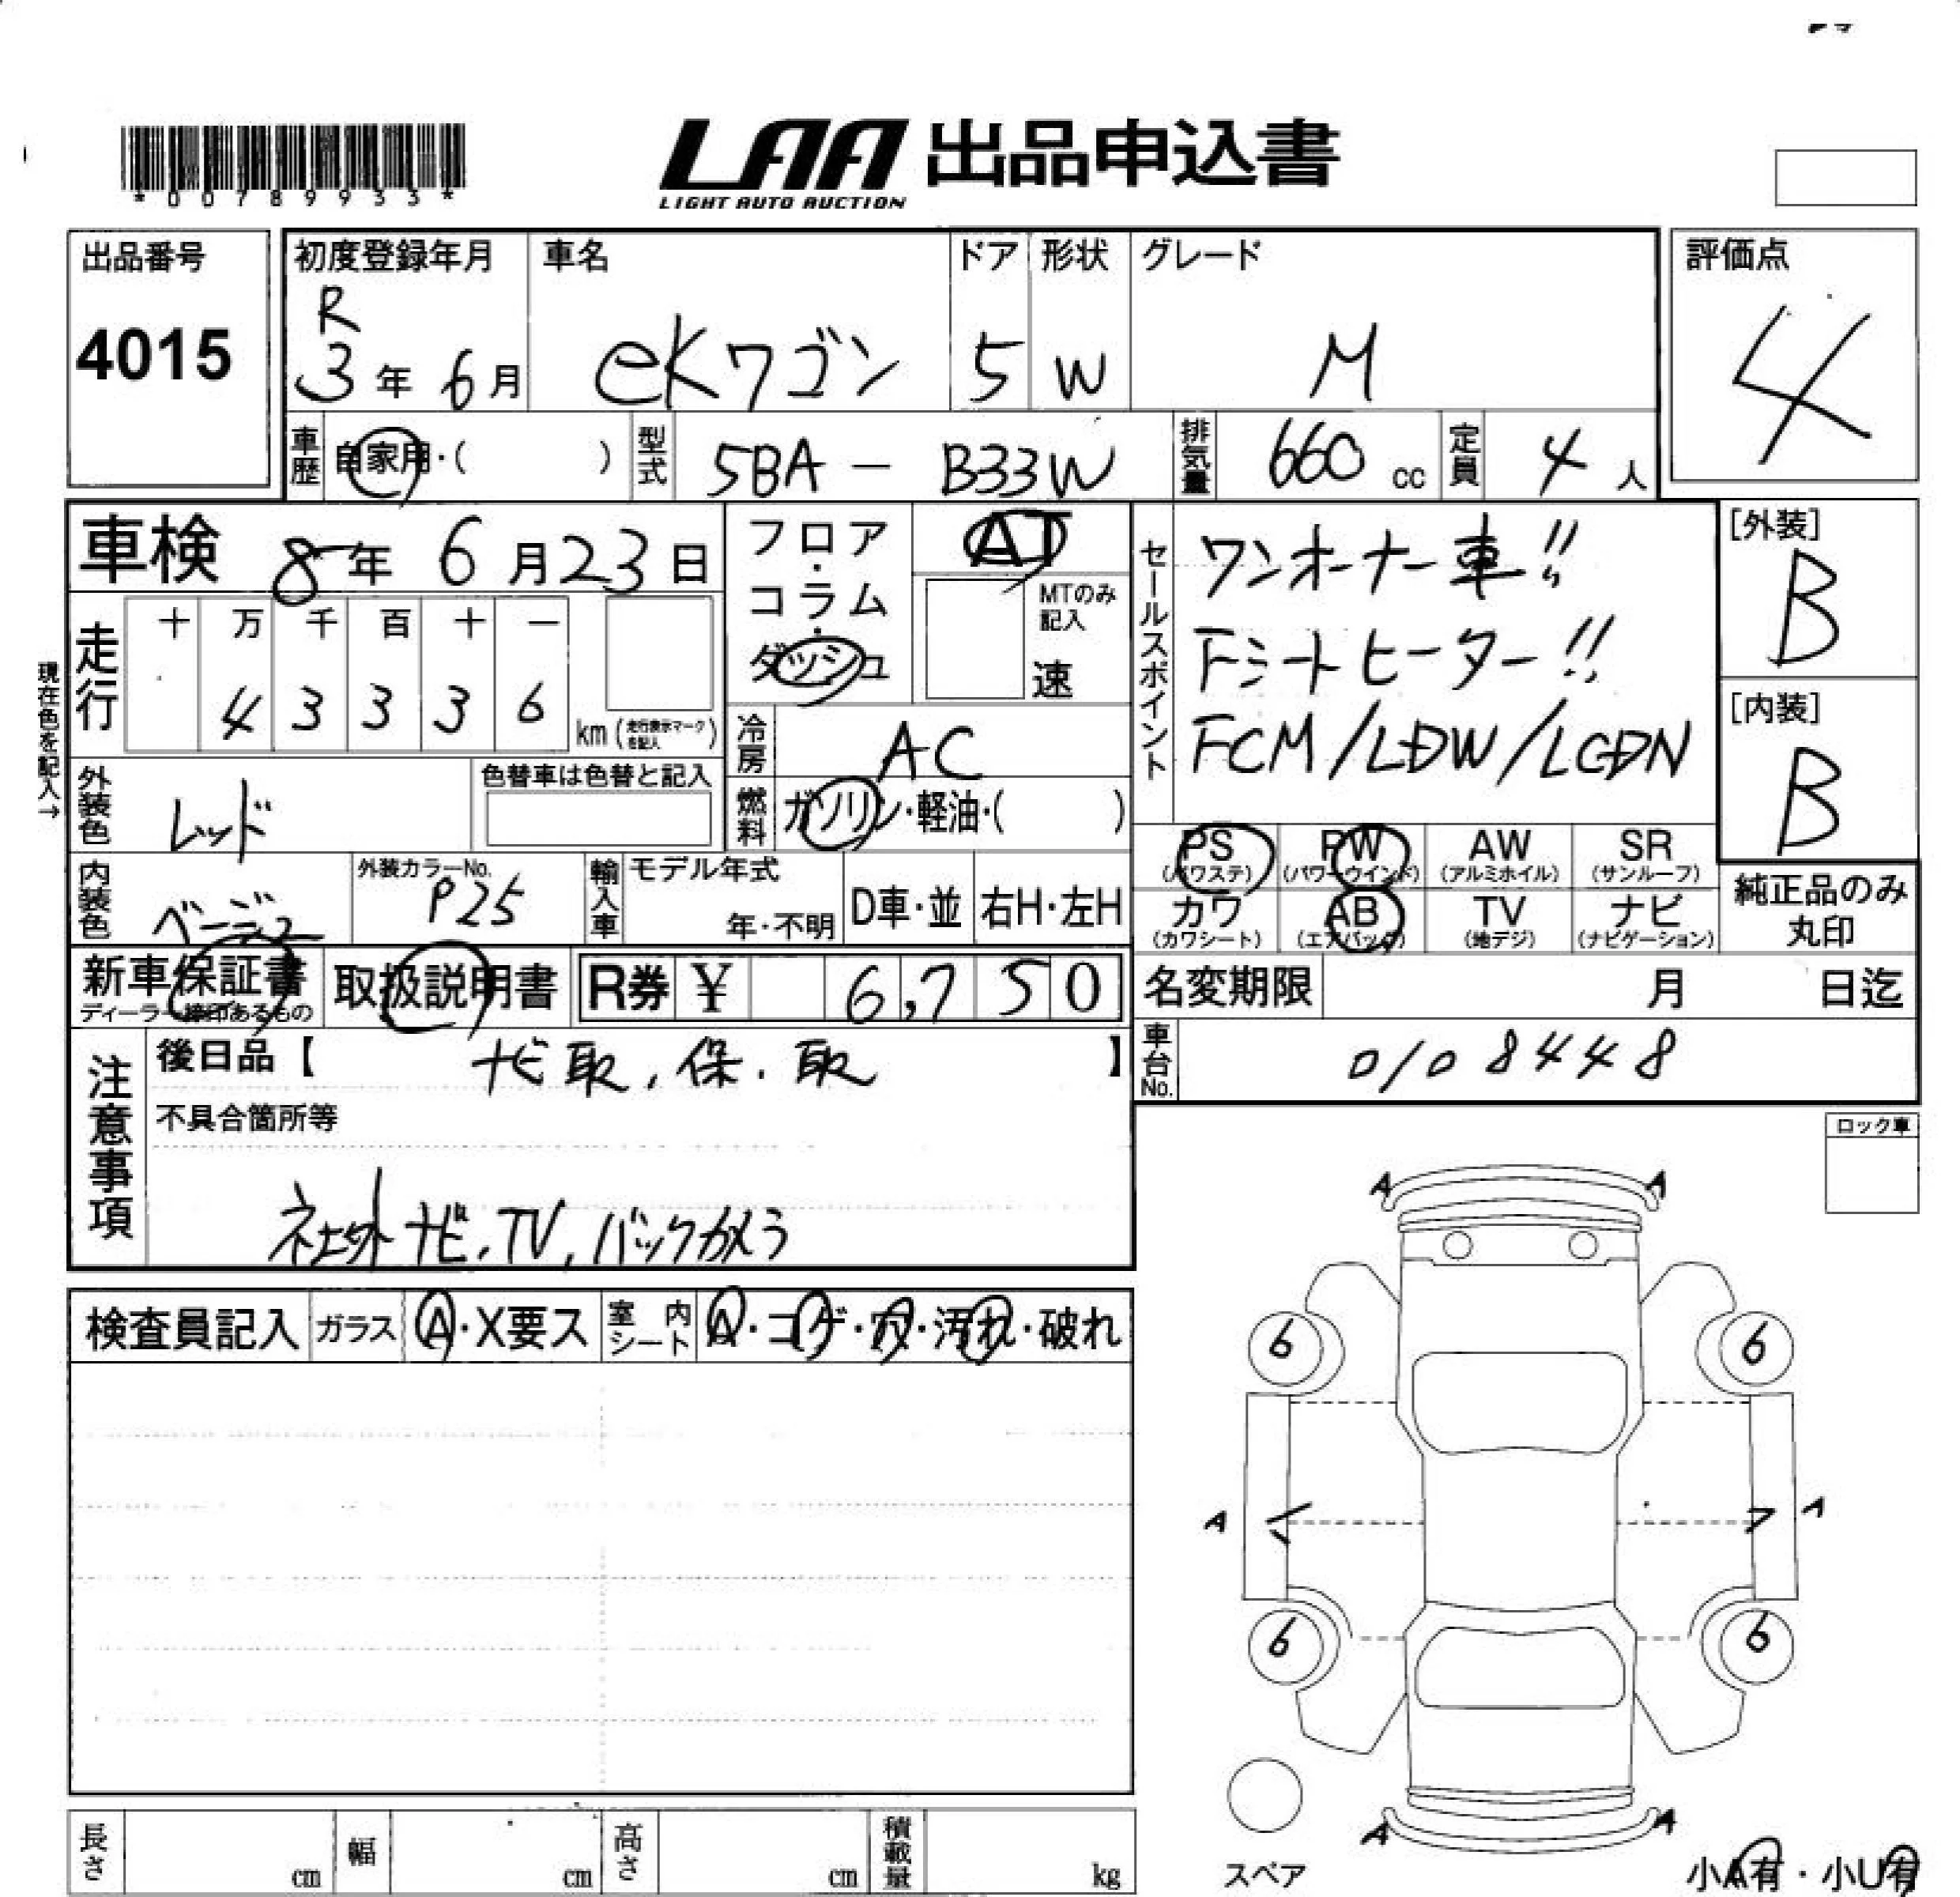 *00789933*
LAA 出品申込書
LIGHT AUTO AUCTION
出品番号
4015
初度登録年月
R
3年 6月
車名
eKワゴン
ドア
5
形状
W
グレード
M
評価点
4
車歴 自家用・( )
型式 5BA - B33W
排気量 660 cc
定員 4 人
車検 8年 6月23日
走行
十 万 千 百 十 一
4 3 3 3 6
km(走行表示マークを記入)
現在色を記入→
フロア・
コラム・
ダッシュ
AT
MTのみ
記入
速
冷房 AC
燃料 ガソリン・軽油・( )
セールスポイント
ワンオーナー車!!
Fシートヒーター!!
FCM/LDW/LCDN
[外装]
B
[内装]
B
外装色 レッド
色替車は色替と記入
内装色 ベージュ
外装カラーNo.
P25
輸入車
モデル年式
年・不明
D車・並
右H・左H
PS (パワステ)
PW (パワーウインド)
AW (アルミホイル)
SR (サンルーフ)
カワ (カワシート)
AB (エアバッグ)
TV (地デジ)
ナビ (ナビゲーション)
純正品のみ
丸印
新車保証書
ディーラー捺印あるもの
取扱説明書
R券 ¥ 6,750
名変期限 月 日迄
車台No. 0108448
注意事項
後日品【 ナビ取, 保. 取 】
不具合箇所等
社外ナビ, TV, バックカメラ
ロック車
検査員記入
ガラス A・X要ス
室内シート A・コゲ・穴・汚れ・破れ
A A
6 6
A A
6 6
A A
スペア
小A有・小U有
長さ cm
幅 cm
高さ cm
積載量 kg